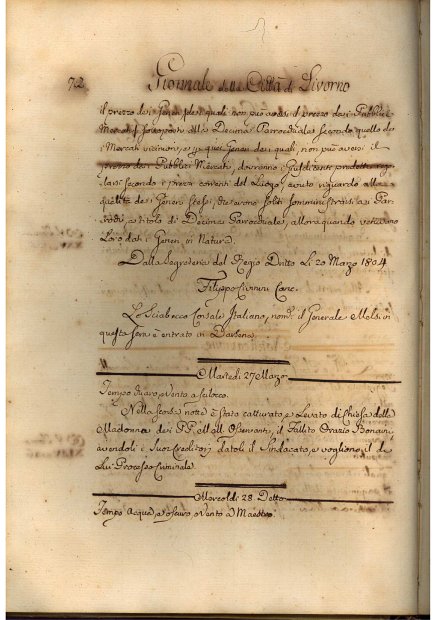 72
Giornale della Città di Livorno
il prezzo dei Generi, dei quali non può aversi il prezzo dei Pubblici
Mercati sottoposti alla Decima Parrocchiale secondo quello dei
Mercati vicini, e quei Generi dei quali, non può aversi il
prezzo dei Pubblici Mercati, dovranno
secondo i prezzi correnti del Luogo, avuto riguardo alla
qualità dei Generi stessi, che avono soliti somministrarsi ai
a titolo di Decima Parrocchiale, allora quando venivano
Loro dati i Generi in Natura.
Dalla Segreteria del Regio Dritto Li 20 Marzo 1804
Filippo Canc.
Lo Sciabecco Corsale Italiano, nom.° il Generale Mela in
questa sera è entrato in Darsena.
Martedì 27 Marzo
Tempo vario, e Vento a Scilocco.
Nella scorsa notte è stato catturato, e Levato di Chiesa della
Madonna dei P.P. M. Osservanti, il Fallito Orazio
avendoli i suoi Creditori datoli il Sindacato, e vogliono il di
Lui Processo Criminale.
Mercoldì 28. Detto
Tempo Acqua, e oscuro e Vento a Maestro.